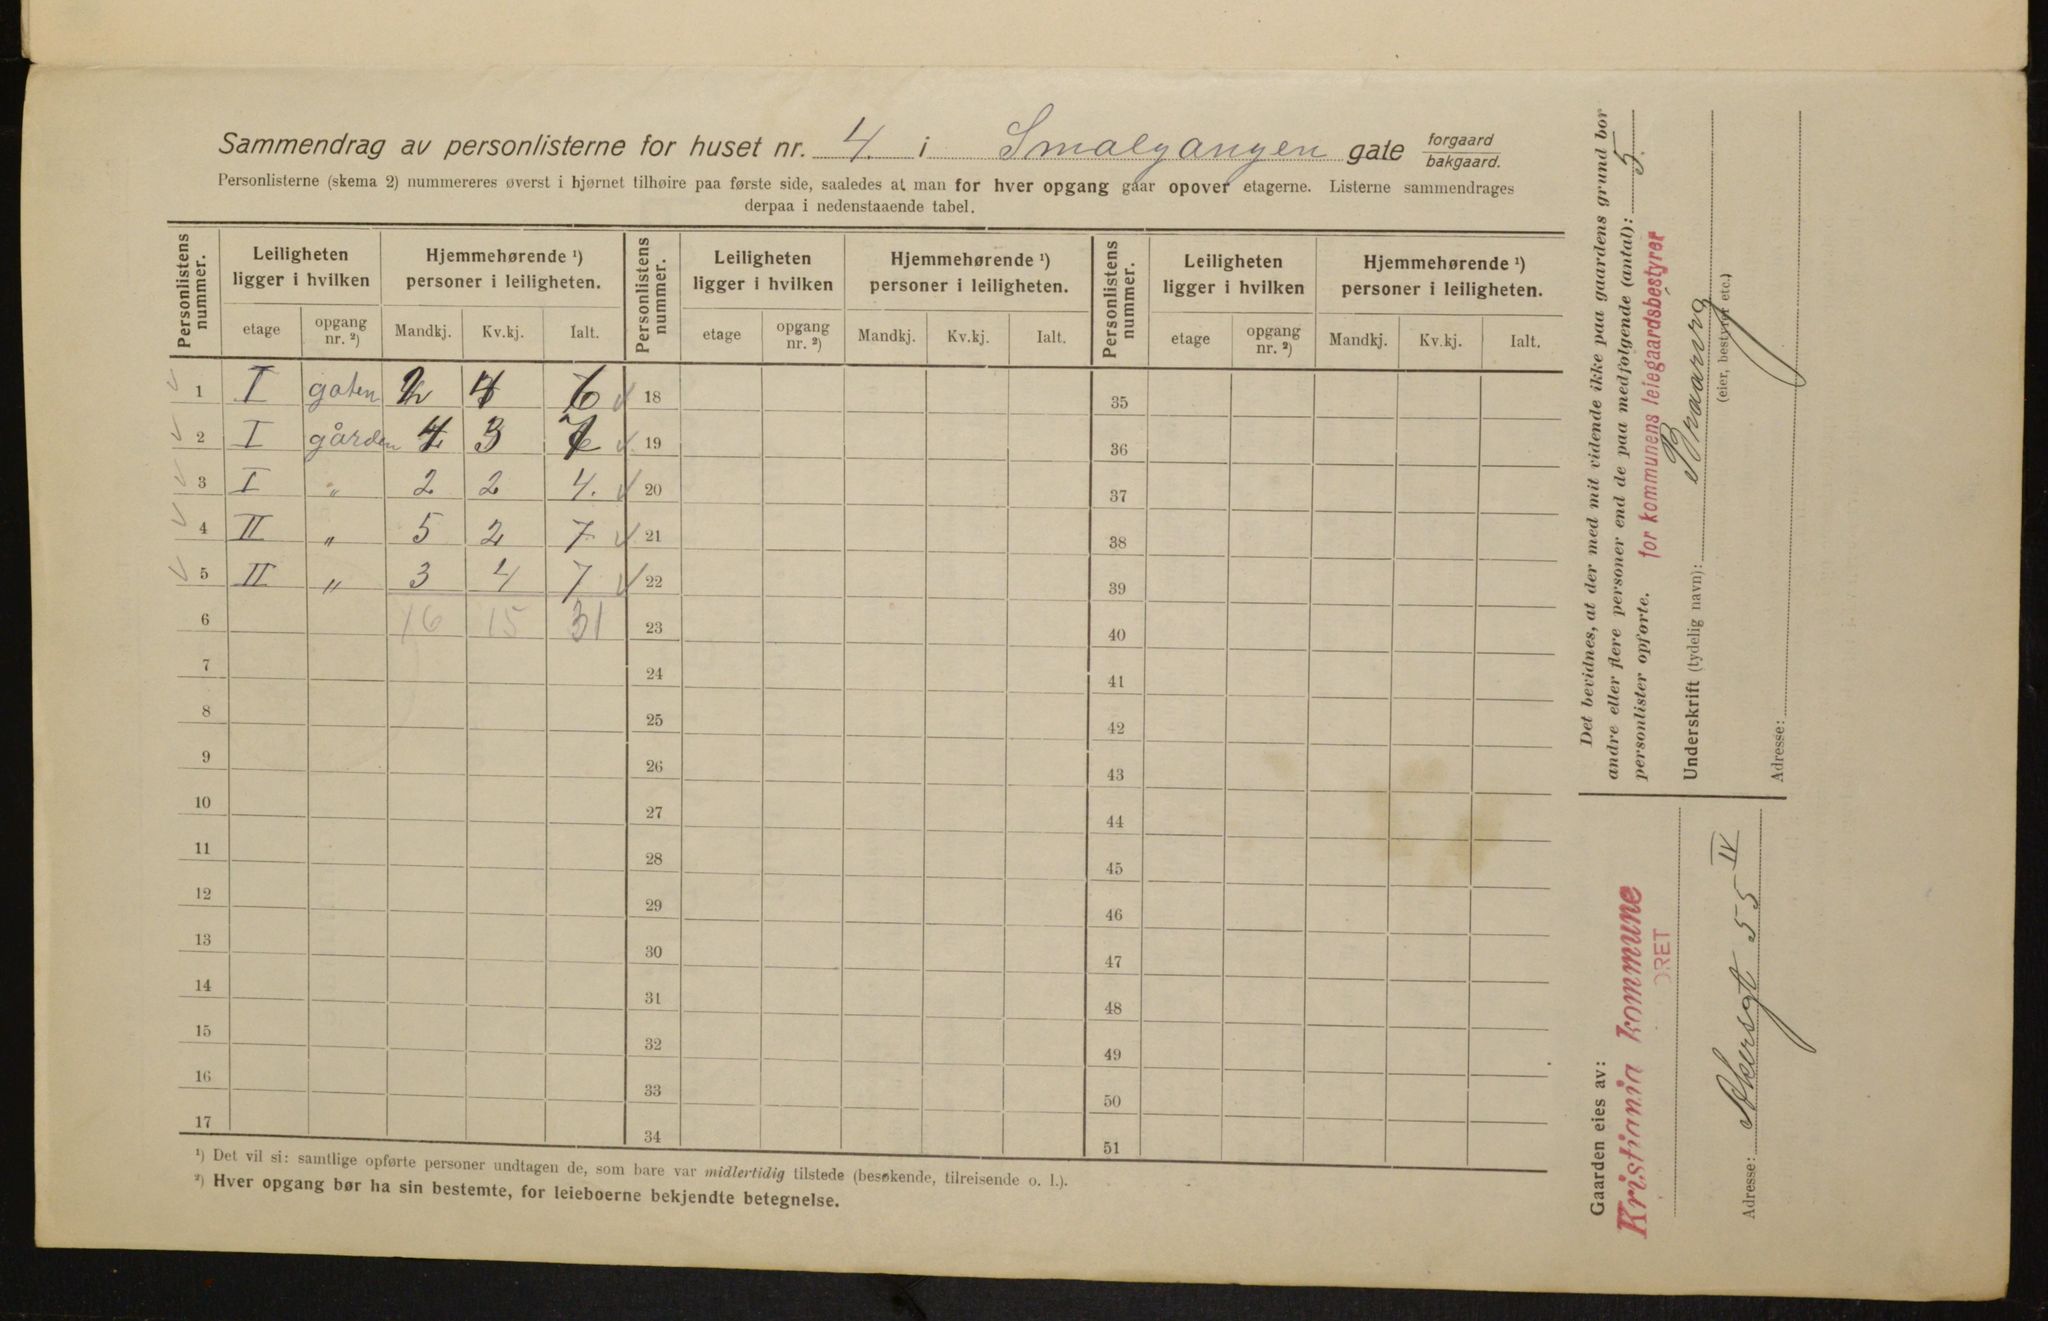 Sammendrag av personlisterne for huset nr. 4. i Smalgangen gate forgaard bakgaard.
Personlisterne (skema 2) nummereres øverst i hjørnet tilhøire paa første side, saaledes at man for hver opgang gaar opover etagerne. Listerne sammendrages
derpaa i nedenstaaende tabel.
Personlistens nummer. Leiligheten ligger i hvilken Hjemmehørende ¹) personer i leiligheten. Personlistens nummer. Leiligheten ligger i hvilken Hjemmehørende ¹) personer i leiligheten. Personlistens nummer. Leiligheten ligger i hvilken Hjemmehørende ¹) personer i leiligheten.
etage opgang nr. ²) Mandkj. Kv.kj. Ialt. etage opgang nr. ²) Mandkj. Kv.kj. Ialt. etage opgang nr. ²) Mandkj. Kv.kj. Ialt.
1 I gaten 2 4 6 18 35
2 I gården 4 3 7 19 36
3 I „ 2 2 4. 20 37
4 II „ 5 2 7 21 38
5 II „ 3 4 7 22 39
6 16 15 31 23 40
7 24 41
8 25 42
9 26 43
10 27 44
11 28 45
12 29 46
13 30 47
14 31 48
15 32 49
16 33 50
17 34 51
¹) Det vil si: samtlige opførte personer undtagen de, som bare var midlertidig tilstede (besøkende, tilreisende o. l.).
²) Hver opgang bør ha sin bestemte, for leieboerne bekjendte betegnelse.
Det bevidnes, at der med mit vidende ikke paa gaardens grund bor
andre eller flere personer end de paa medfølgende (antal): 5.
personlister opførte. for kommunens leiegaardsbestyrer
Underskrift (tydelig navn):
(eier, bestyrer etc.)
Adresse:
Gaarden eies av:
Kristiania kommune
ORET
Adresse: Akersgt 55 IV